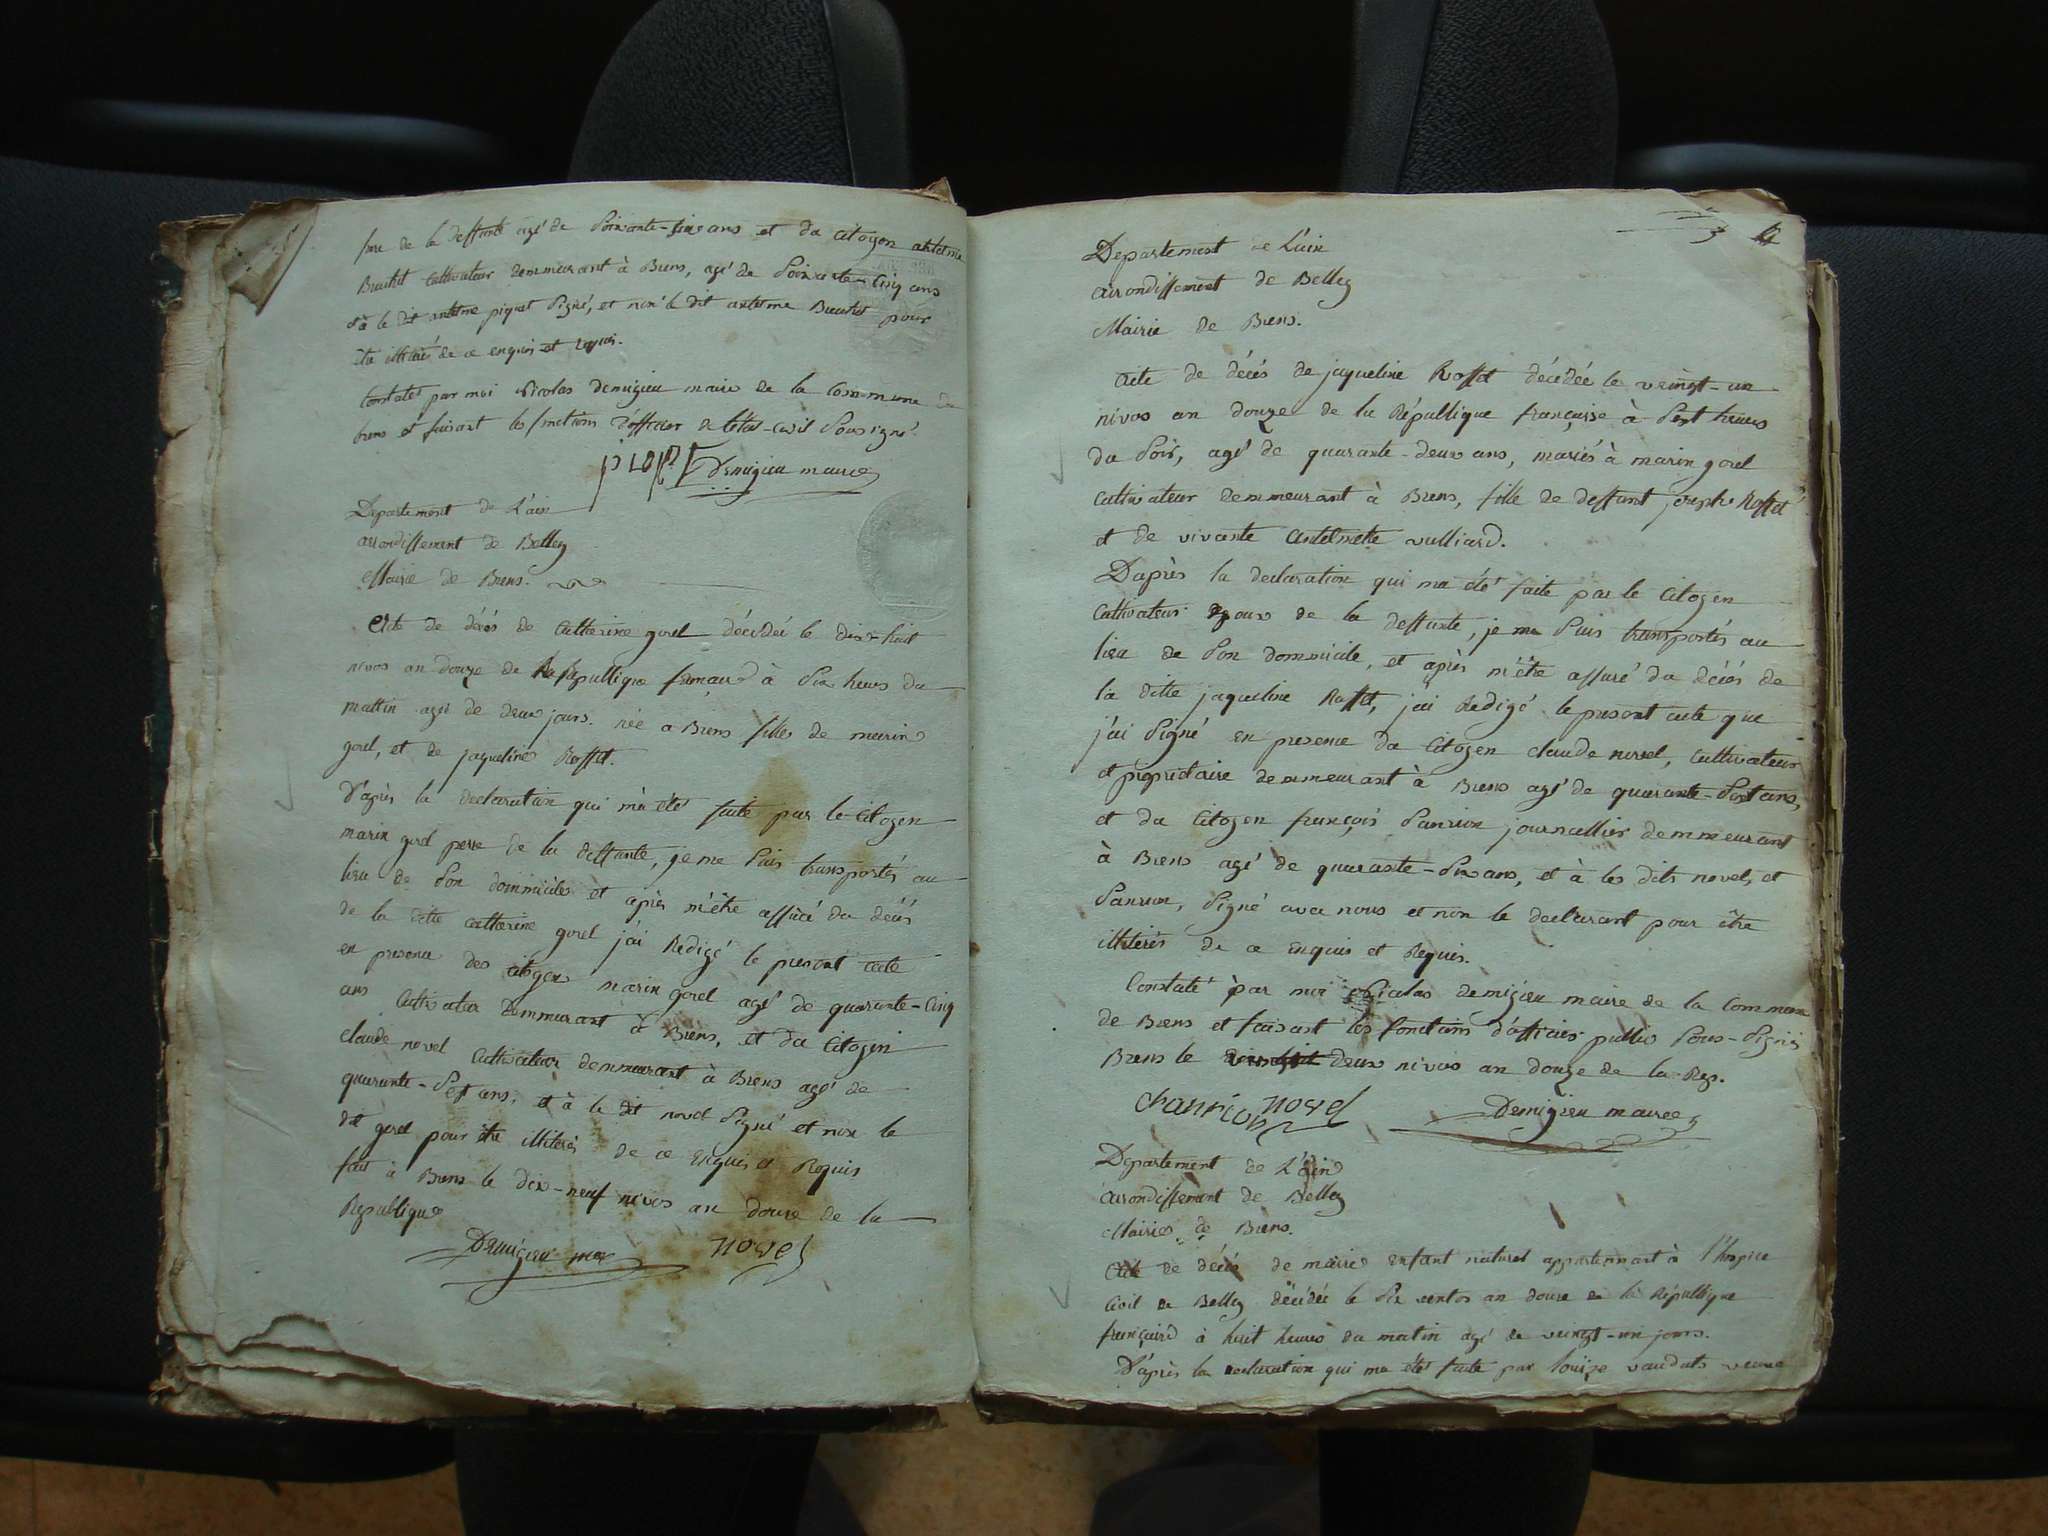 frere de la deffunte agé de soixante-six ans et du citoyen antelme
Bruchet cultivateur demmeurant à Brens, agé de soixante-cinq ans
et à le dit antelme piquet signé, et non le dit antelme Bruchet pour
être illiterés de ce enquis et requis.
Constaté par moi Nicolas demigieu maire de la commune de
brens et faisant les fonctions d'officier de l'état-civil sousigné.
Demigieu maire
Departement de L'ain
arrondissement de Belley
Mairie de Brens.
Acte de décés de catherine gorel décédée le dix-huit
nivos an douze de la Republique français à six heures du
mattin agée de deux jours. née a Brens fille de marin
gorel, et de jaqueline Rosset.
D'après la declaration qui m'a été faite par le Citoyen
marin gorel pere de la deffunte, je me suis transportés au
lieu de son dommicile et après m'être assuré du décés
de la ditte catherine gorel j'ai Redigé le present acte
en presence des citoyen marin gorel agé de quarante-cinq
ans cultivateur demmurant à Brens, et du Citoyen
claude novel cultivateur demmeurant à Brens agé de
quarante-sept ans, et à le dit novel signé et non le
dit gorel pour être illiterés de ce enquis et Requis
fait à Brens le dix-neuf nivos an douze de la
Republique
Demigieu mre novel
Departement de L'ain
arrondissement de Belley
Mairie de Brens.
Acte de décés de jaqueline Rosset décédée le veingt-un
nivos an douze de la République française à sept heures
du soir, agé de quarante-deux ans, mariés à marin gorel
cultivateur demmeurant à Brens, fille de deffunt joseph Rosset
et de vivante Antelmette vulliard.
Daprès la declaration qui ma été faite par le Citoyen
cultivateur Epoux de la deffunte, je me suis transportés au
lieu de son dommicile, et après m'être assuré du décés de
la ditte jaqueline Rosset, j'ai Redigé le present acte que
j'ai signé en presence du Citoyen claude novel, cultivateur
et propriétaire demmeurant à Brens agé de quarante-sept ans,
et du Citoyen françois Sanrion journallier demmeurant
à Brens agé de quarante-six ans, et à les dits novel, et
Sanrion, signé avec nous et non le declarant pour être
illiterés de ce enquis et Requis.
Constaté par moi Nicolas demigieu maire de la commune
de Brens et faisant les fonctions d'officier public sous-signés
Brens le deux nivos an douze de la Rep.
chanrion novel Demigieu maire
Departement de L'ain
arrondissement de Belley
Mairie de Brens.
Acte de décés de marie enfant naturel appartennant à l'hospice
Civil de Belley décédée le six ventos an douze de la République
française à huit heures du matin agé de veingt-un jours.
D'après la declaration qui ma été faite par louise vaudats veuve